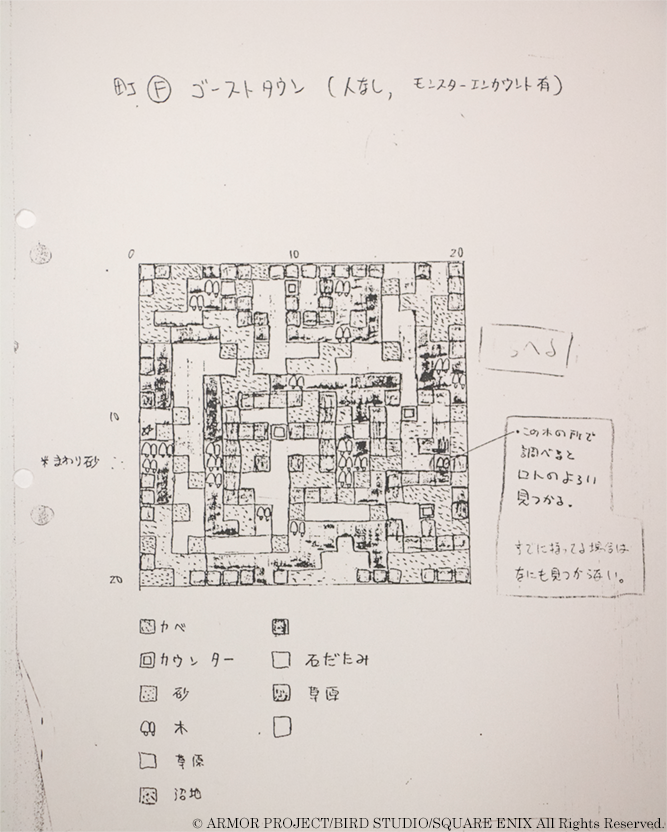 町 Ⓕ ゴーストタウン (人なし, モンスターエンカウント有)
0 10 20
10
*まわり砂
20
・この木の所で
調べると
ロトのよろい
見つかる。
すでに持ってる場合は
なにも見つからない。
カベ
カウンター 石だたみ
砂 草原
木
草原
沼地
© ARMOR PROJECT/BIRD STUDIO/SQUARE ENIX All Rights Reserved.